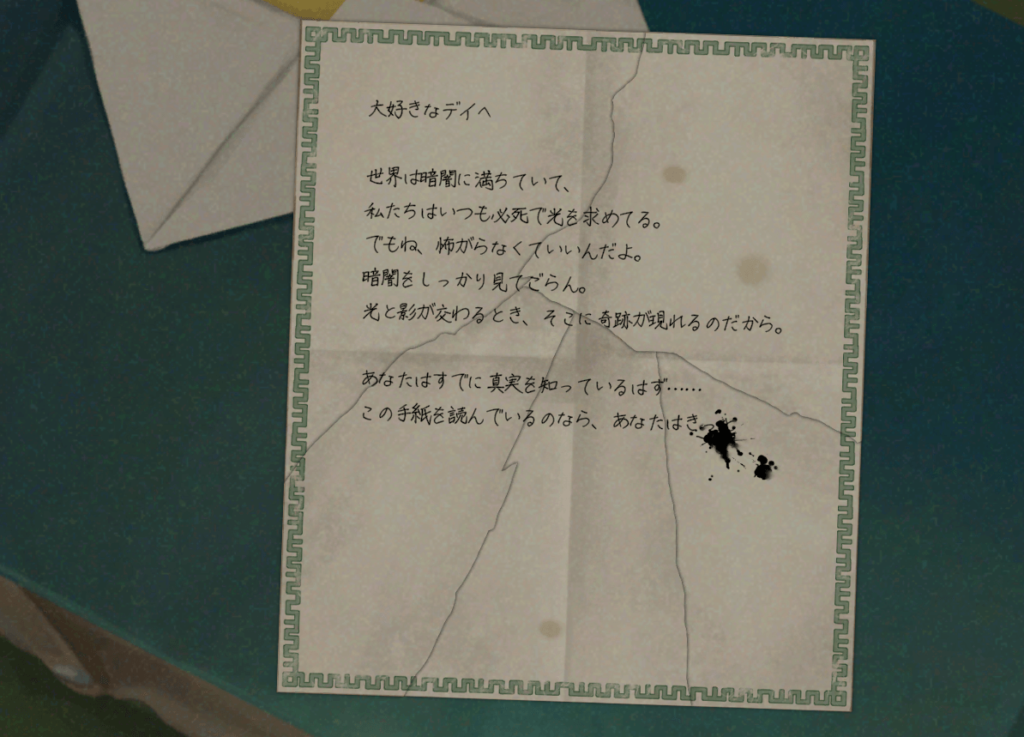 大好きなデイへ
世界は暗闇に満ちていて、
私たちはいつも必死で光を求めてる。
でもね、怖がらなくていいんだよ。
暗闇をしっかり見てごらん。
光と影が交わるとき、そこに奇跡が現れるのだから。
あなたはすでに真実を知っているはず……
この手紙を読んでいるのなら、あなたはき